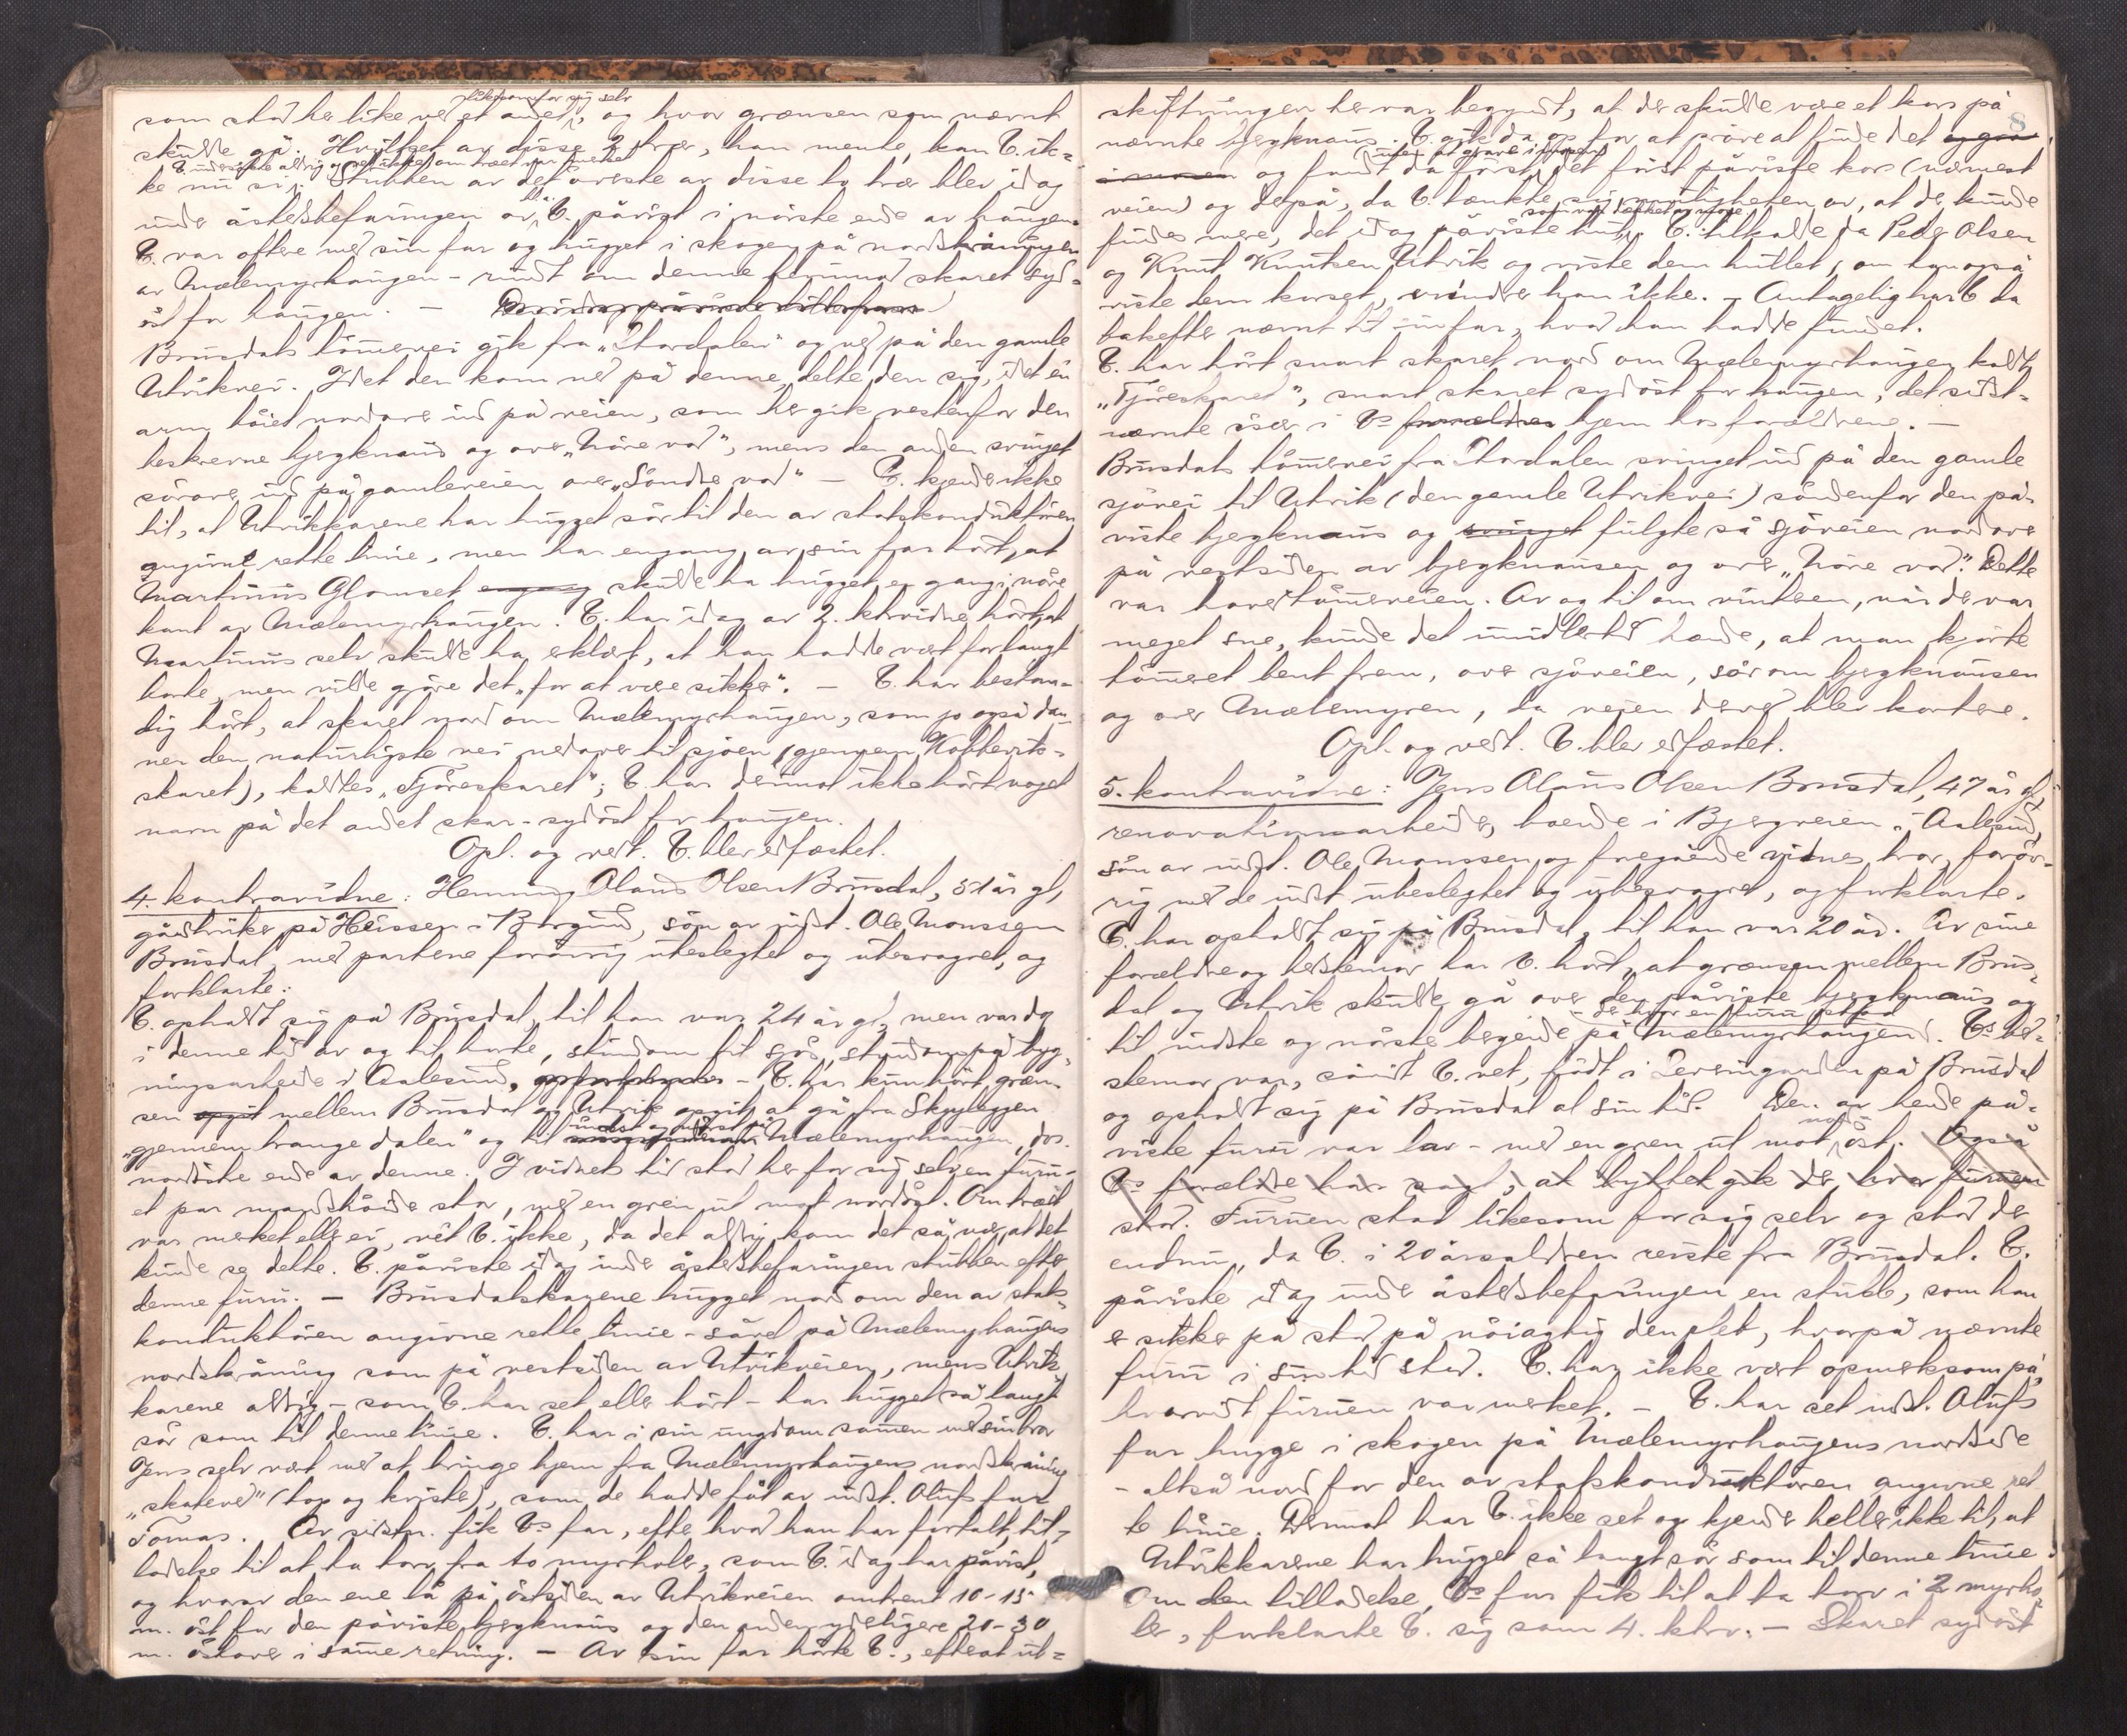 likesom for sig selv
som stod her like ved et andet, og hvor grænsen som nævnt
skulde gå. Hvilket av disse 2 trær, han mente, kan V. ik-
V. undersøkte aldrig og vet ikke, om træet var merket
ke nu si. Stubben av det øverste av disse to trær blev idag
under åstedsbefaringen av V. påvist i nørste ende av haugen.
V. var oftere med sin far og hugget i skogen på nordskråningen
av Mælemyrhaugen - rundt om denne forunder skaret syd-
øst for haugen. -
Brusdals tømmervei gik fra "Stordalen" og ned på den gamle
Utvikvei. Idet den kom ned på denne, delte den sig, idet én
arm tøiet nordover ind på veien, som her gik vestenfor den
beskrevne bjergknaus og over "Nøre vad", mens den anden svinget
sørover ind på gamleveien over "Søndre vad" - V. kjender ikke
til, at Utvikkarene har hugget sør til den av statskonduktøren
angivne rette linie, men har engang av sin far hørt, at
Martinus Glomset engang skulde ha hugget en gang i nøre
kant av Mælemyrhaugen. V. har idag av 2. ktrvidne hørt, at
Martinus selv skulde ha erklært, at han hadde vært for langt
borte, men vilde gjøre det "for at være sikker". - V. har bestan-
dig hørt, at skaret nord om Mælemyrhaugen, som jo også dan-
ner den naturligste vei nedover til sjøen (gjennem Kobberits-
skaret), kaldtes "Tjøreskaret"; V. har derimot ikke hørt noget
navn på det andet skar - sydøst for haugen.
Opl. og vedt. V. blev edfæstet.
4. kontravidne: Henning Olaus Olsen Brusdal, 51 år gl.,
gårdbruker på Hessen i Borgund, søn av indst. Ole Monssen
Brusdal, med partene forøvrig ubeslegtet og ubesvogret, og
forklarte:
V. opholdt sig på Brusdal, til han var 24 år gl., men var dog
i denne tid av og til borte, stundom til sjøs, stundom på byg-
ningsarbeide i Aalesund, - V. har kun hørt græn-
sen opgit mellem Brusdal og Utvik opgit at gå fra Skyleggen
inderst og nørst på
"gjennem trange dalen" og til Mælemyrhaugen, dvs.
nordøstre ende av denne. I vidnets tid stod her for sig selv en furu -
et par mandshøider stor, med en gren ut mot nordøst. Om træet
var merket eller ei, vet V. ikke, da det aldrig kom det så nær, at det
kunde se dette. V. påviste idag under åstedsbefaringen stubben efter
denne furu. - Brusdalskarene hugget nord om den av stats-
konduktøren angivne rette linie - såvel på Mælemyrhaugens
nordskråning som på vestsiden av Utvikveien, mens Utvik-
karene aldrig - som V. har set eller hørt - har hugget så langt
sør som til denne linie. V. har i sin ungdom sammen med sin bror
Jens selv vært med at bringe hjem fra Mælemyrhaugens nordskråning
"skateved" (top og kvister), som de hadde fåt av indst. Olufs far
Tomas. Av sidstn. fik V's far, efter hvad han har fortalt, til-
ladelse til at ta torv fra to myrhuler, som V. idag har påvist,
og hvorav den ene lå på østsiden av Utvikveien omtrent 10-15
m. øst for den påviste bjergknaus og den anden yderligere 20-30
m. østover i samme retning. - Av sin far hørte V., efterat ut-
8
skiftningen her var begyndt, at der skulde være et kors på
nævnte bjergknaus. V. gik da op for at prøve at finde det og gav
(uten at grave i mosen)
og fandt da først det først påviste kors (nærmest
veien) og derpå, da V. tænkte sig muligheten av, at der kunde
som var dækket av mose
findes mere, det idag påviste hul. V. tilkaldte da Peder Olsen
og Knut Knutsen Utvik og viste dem hullet; om han også
viste dem korset, erindrer han ikke. - Antagelig har V. da
bakefter nævnt til sin far, hvad han hadde fundet.
V. har hørt snart skaret nord om Mælemyrhaugen kaldt
"Tjøreskaret", snart skaret sydøst for haugen, det sidst-
nævnte især i V's forældres hjem hos forældrene. -
Brusdals tømmervei fra Stordalen svinget ind på den gamle
sjøvei til Utvik (den gamle Utvikvei) søndenfor den på-
viste bjergknaus og svinget fulgte så sjøveien nordover
på vestsiden av bjergknausen og over "Nøre vad". Dette
var hovedtømmerveien. Av og til om vinteren, når der var
meget sne, kunde det imidlertid hænde, at man kjørte
tømmeret bent frem, over sjøveien, sør om bjergknausen
og over Mælemyren, da veien derved blev kortere.
Opl. og vedt. V. blev edfæstet.
5. kontravidne: Jens Olaus Olsen Brusdal, 47 år gl,
renovationsarbeider, boende i Bjergveien i Aalesund,
søn av indst. Ole Monssen og foregående vidnes bror, forøv-
rig med de indst. ubeslegtet og ubesvogret, og forklarte.
V. har opholdt sig på Brusdal, til han var 20 år. Av sine
forældre og bedstemor har V. hørt, at grænsen mellem Brus-
dal og Utvik skulde gå over den påviste bjergknaus og
- der hvor en furu stod
til inderste og nørste begynde på Mælemyrhaugen. V's bed-
stemor var, såvidt V. vet, født i Lerviugarden på Brusdal
og opholdt sig på Brusdal al sin tid. Den av hende på-
nord
viste furu var lav - med en gren ut mot øst. Også
V's forældre har sagt, at byttet gik der, hvor furuen
stod. Furuen stod likesom for sig selv og stod der
endnu, da V. i 20 årsaldren reiste fra Brusdal. V.
påviste idag under åstedsbefaringen en stubb, som han
er sikker på stod på nøiagtig den plet, hvorpå nævnte
furu i sin tid stod. V. har ikke vært opmerksom på,
hvorvidt furuen var merket. - V. har set indst. Olufs
far hugge i skogen på Mælemyrhaugens nordside
- altså nord for den av statskonduktøren angivne ret-
te linie. Derimot har V. ikke set og kjender heller ikke til, at
Utvikkarene har hugget så langt sør som til denne linie.
Om den tilladelse, V's far fik til at ta torv i 2 myrhu-
ler, forklarte V. sig som 4. ktrv. - Skaret sydøst